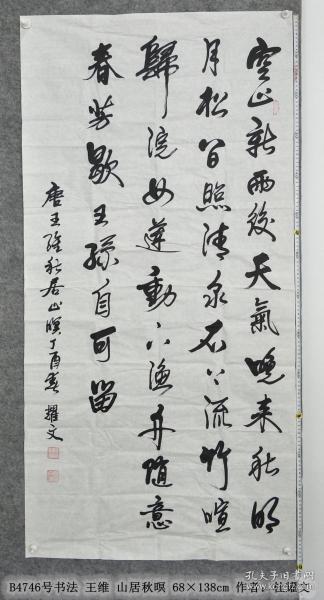 空山新雨後天氣晚来秋明
月松间照清泉石上流竹喧
歸浣女蓮動下漁舟随意
春芳歇王孫自可留
唐王維秋居山暝丁酉春耀文
B4746号书法 王维 山居秋暝 68×138cm 作者：汪耀文
孔夫子旧书网